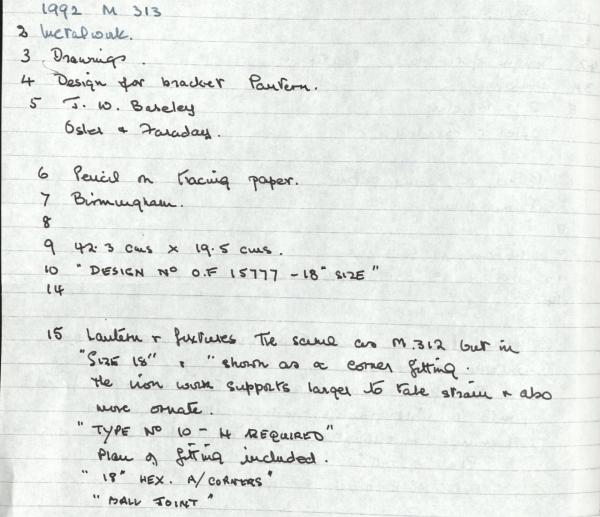 1992 M 313
2 Metalwork.
3 Drawings.
4 Design for bracket Lantern.
5 J. W. Baseley
Osler & Faraday.
6 Pencil on tracing paper.
7 Birmingham.
8
9 42.3 cms x 19.5 cms.
10 "DESIGN Nº O.F 15777 - 18" SIZE"
14
15 Lantern & fixtures the same as M.312 but in
"SIZE 18" & " shown as a corner fitting.
The iron work supports larger to take strain & also
more ornate.
"TYPE Nº 10 - 4 REQUIRED"
Plan of fitting included.
"18" HEX. A/CORNERS"
"BALL JOINT"